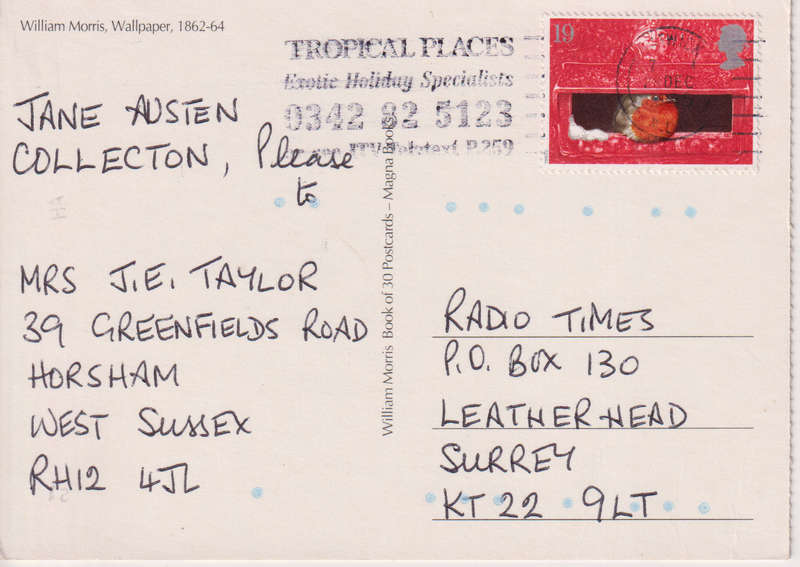 William Morris, Wallpaper, 1862-64
TROPICAL PLACES
Exotic Holiday Specialists
0342 82 5123
ITV Teletext P.259
19
JANE AUSTEN
COLLECTON, Please
to
MRS J.E. TAYLOR
39 GREENFIELDS ROAD
HORSHAM
WEST SUSSEX
RH12 4JL
William Morris Book of 30 Postcards – Magna Books
RADIO TIMES
P.O. BOX 130
LEATHERHEAD
SURREY
KT22 9LT